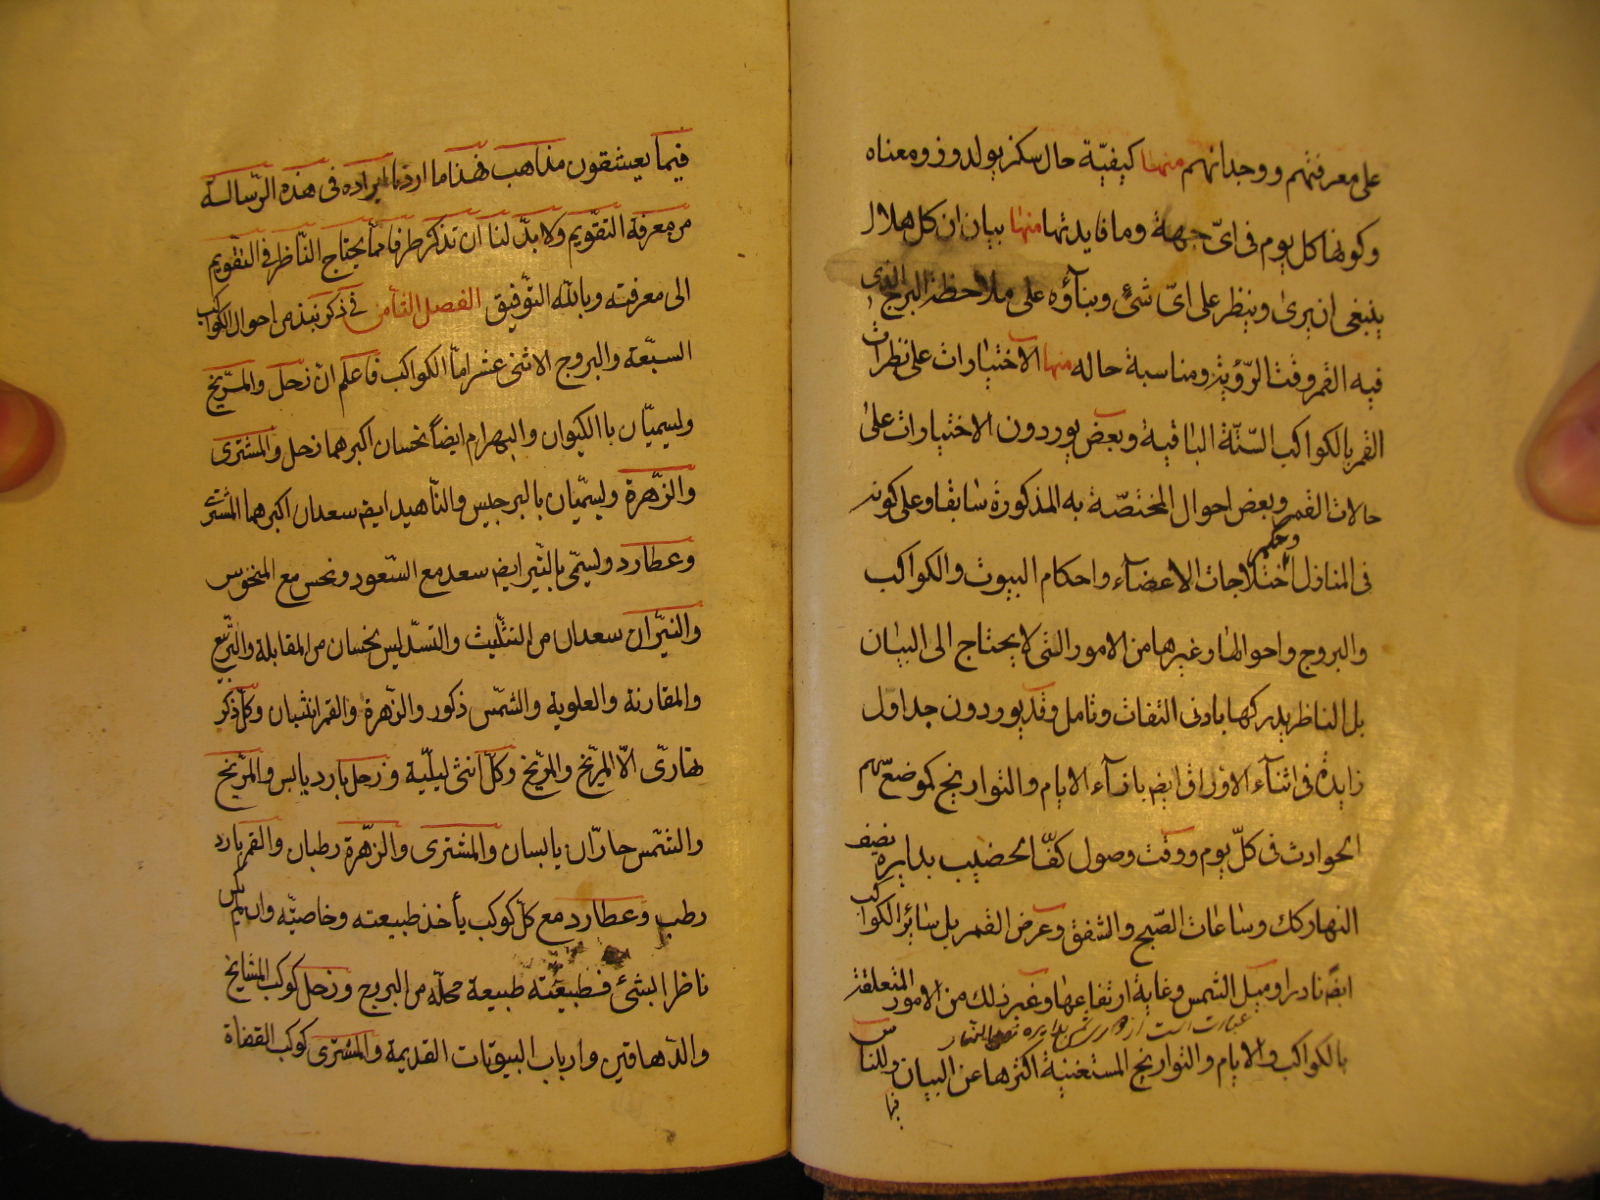 على معرفتهم ووجدانهم منها كيفيّة حال سكز يولدوز ومعناه
وكونها كل يوم فى اىّ جهة وما فايدتها منها بيان ان كل هلال
ينبغى ان يرى وينظر على اىّ شئ وبنآؤه على ملاحظة البرج الذى
فيه القمر وقت الرّؤية ومناسبة حاله منها الاختيارات على نظرات
القمر بالكواكب السّتّة الباقية وبعض يوردون الاختيارات على
حالات القمر وبعض احوال المختصّة به المذكورة سابقا وعلى كونه
فى المنازل وحكم اختلاجات الاعضآء واحكام البيوت والكواكب
والبروج واحوالها وغيرها من الامور التى لا يحتاج الى البيان
بل الناظر يدركها بادنى التفات وتامل وقد يوردون جداول
زايدة فى اثنآء الاوراق ايض بازآء الايام والتواريخ كموضع سهم
الحوادث فى كلّ يوم ووقت وصول كفّ الخضيب بدايره نصف
النهار كك وساعات الصّبح والشفق وعرض القمر بل سائر الكواكب
ايضا نادرا وميل الشمس وغاية ارتفاعها وغير ذلك من الامور المتعلقة
عبارت است از بدايره نصف النهار
بالكواكب والايام والتواريخ المستغنية اكثرها عن البيان وللناس
فيما
فيما يعشقون مذاهب فهذا ما اردنا ايراده فى هذه الرّسالة
من معرفة التقويم ولا بدّ لنا ان نذكر طرفا ممّا يحتاج النّاظر فى التقويم
الى معرفته وبالله التوفيق الفصل الثامن فى ذكر نبذ من احوال الكواكب
السبّعة والبروج الاثنى عشر امّا الكواكب فاعلم انّ زحل والمرّيخ
وليسميّان با الكيوان والبهرام ايضاً نحسان اكبرهما زحل والمشترى
والزّهرة وليسمّيان بالبرجيس والنّاهيد ايض سعدان اكبرهما المشترى
وعطارد وليسمّى بالتّير ايض سعد مع السّعود ونحس مع النحوس
والنيّران سعدان من التثّليث والتسدّليس نحسان من المقابلة والتربّيع
والمقارنة والعلوية والشمّس ذكور والزّهرة والقمر انثيان وكلّ ذكر
نهارىّ الاّ المرّيخ والمرّيخ وكلّ انثى ليليّة وزحل بارد يابس والمرّيخ
والشمّس حارّان يابسان والمشترى والزّهرة رطبان والقمر بارد
رطب وعطارد مع كلّ كوكب يأخذ طبيعته وخاصيّته وان ليس
ناظر البشئ فطبيعّته طبيعة محلّه من البروج وزحل كوكب المشايخ
والدّهاقين وارباب البيوتات القديمة والمشترى كوكب القضاة